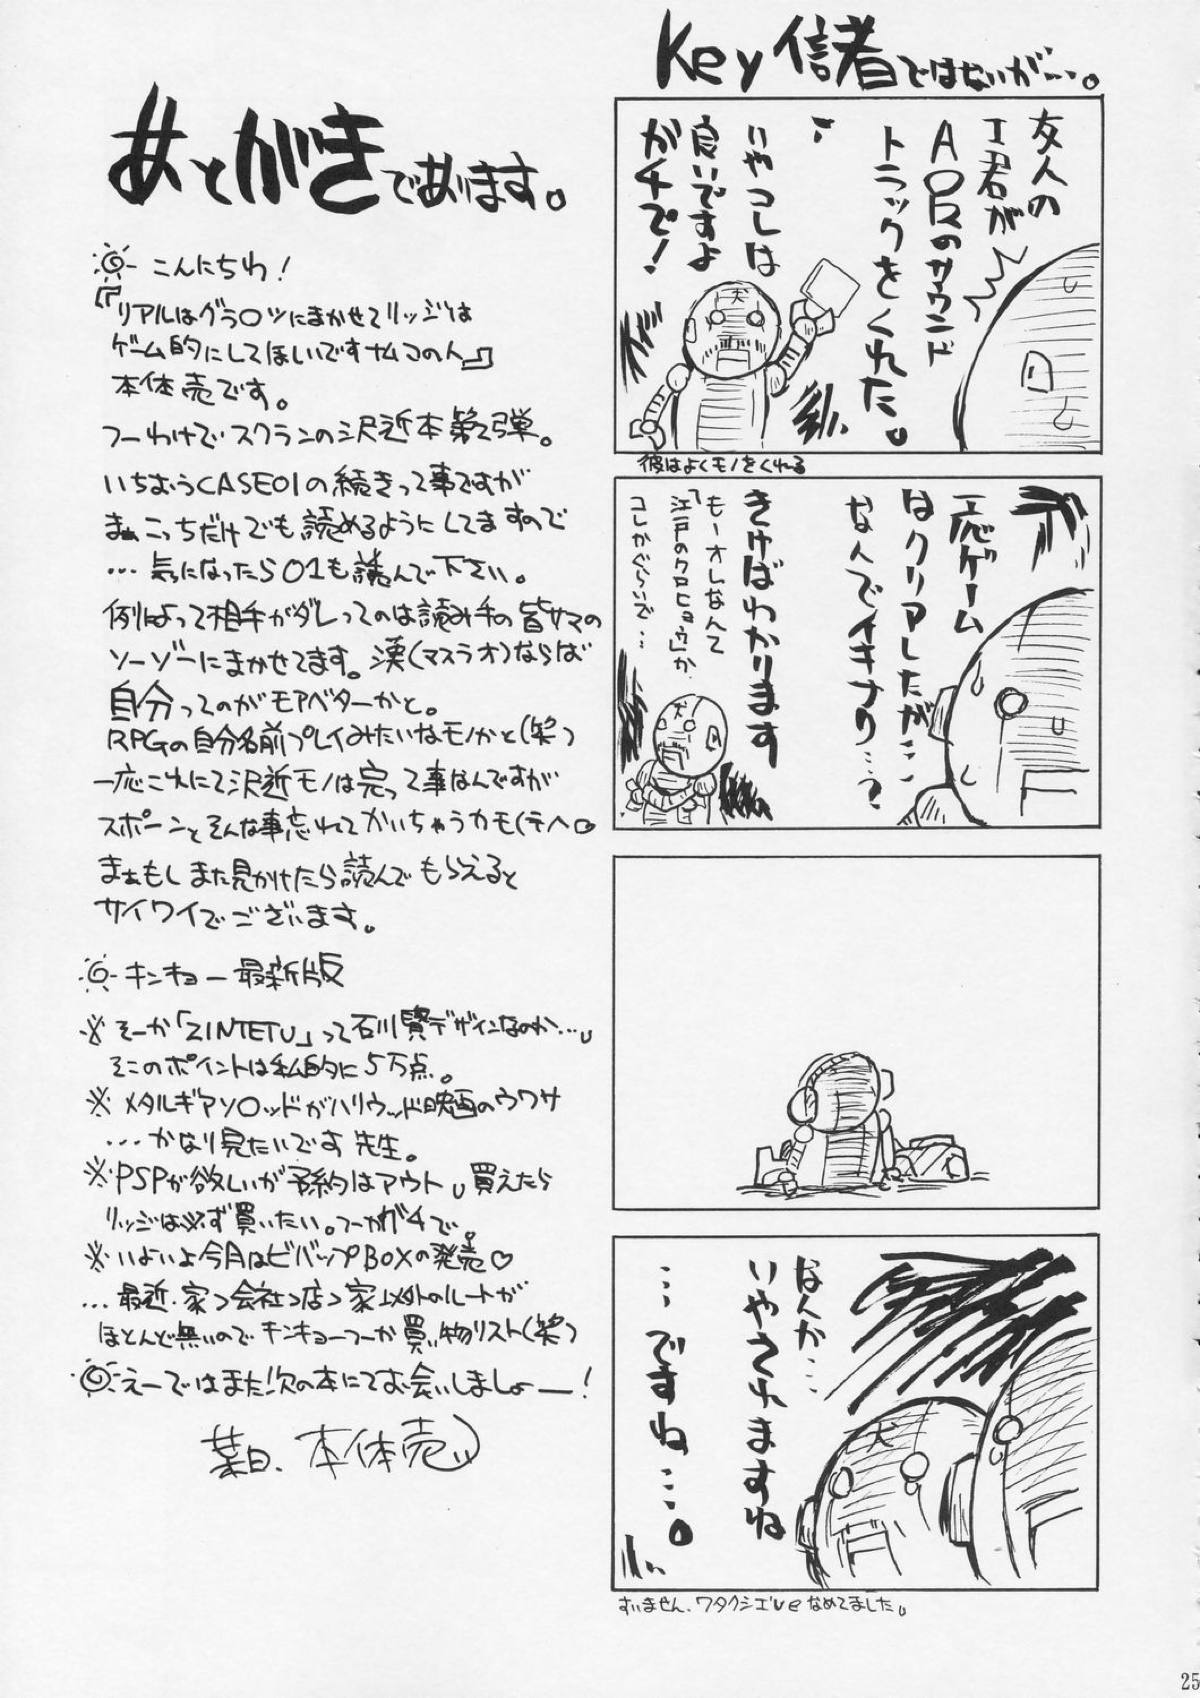 Key信者ではないが…。
友人の
I君が
AIRのサウンド
トラックをくれた。
いやコレは
良いですよ
ガチで!
彼はよくモノをくれる
一応ゲーム
はクリアしたが…
なんでイキナリ…?
きけばわかります
もーオレなんて
「江戸のクロヒョウ」か
コレかぐらいで…
なんか…
いやされますね
…ですね…。
すいません、ワタクシもVeなめてました。
あとがきであります。
こんにちわ!
『リアルはグラ○ツにまかせてリッジは
ゲーム的にしてほしいですナムコの人』
本体売です。
つーわけでスクランの沢近本第2弾。
いちおうCASE01の続きって事ですが
まぁこっちだけでも読めるようにしてますので
…気になったら01も読んで下さい。
例によって相手がダレってのは読み手の皆サマの
ソーゾーにまかせてます。漢(マスラオ)ならば
自分ってのがモアベターかと。
RPGの自分名前プレイみたいなモノかと(笑)
一応これにて沢近モノは完って事なんですが
スポーンとそんな事忘れてかいちゃうカモ(テヘ。
まぁもしまた見かけたら読んでもらえると
サイワイでございます。
キンキョー最新版
※そーか「ZINTETU」って石川賢デザインなのか…。
そこのポイントは私的に5万点。
※メタルギアソ○ッドがハリウッド映画のウワサ
…かなり見たいです先生。
※PSPが欲しいが予約はアウト。買えたら
リッジは必ず買いたい。つーかガチで。
※いよいよ今月はビバップBOXの発売♡
…最近、家→会社→店→家以外のルートが
ほとんど無いのでキンキョーつーか買い物リスト(笑)
えーではまた次の本にてお会いしましょー!
葉月、本体売
25